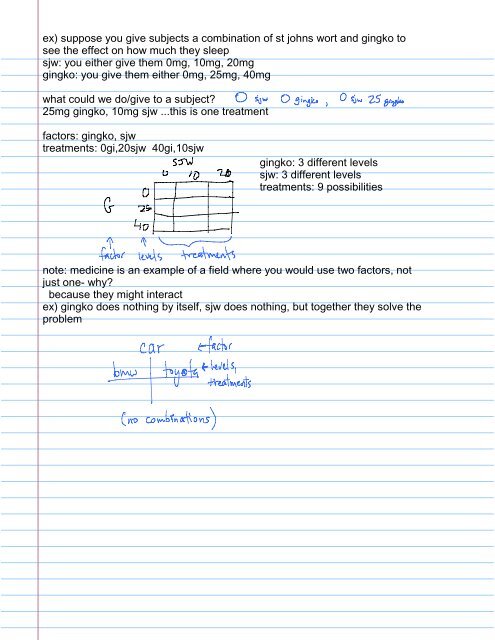 ex) suppose you give subjects a combination of st johns wort and gingko to
see the effect on how much they sleep
sjw: you either give them 0mg, 10mg, 20mg
gingko: you give them either 0mg, 25mg, 40mg
what could we do/give to a subject? 0 sjw 0 gingko, 0 sjw 25 gingko
25mg gingko, 10mg sjw ...this is one treatment
factors: gingko, sjw
treatments: 0gi,20sjw 40gi,10sjw
SJW
0 10 20
gingko: 3 different levels
sjw: 3 different levels
treatments: 9 possibilities
0
G 25
40
factor levels treatments
note: medicine is an example of a field where you would use two factors, not
just one- why?
because they might interact
ex) gingko does nothing by itself, sjw does nothing, but together they solve the
problem
car ← factor
bmw toyota ← levels,
treatments
(no combinations)